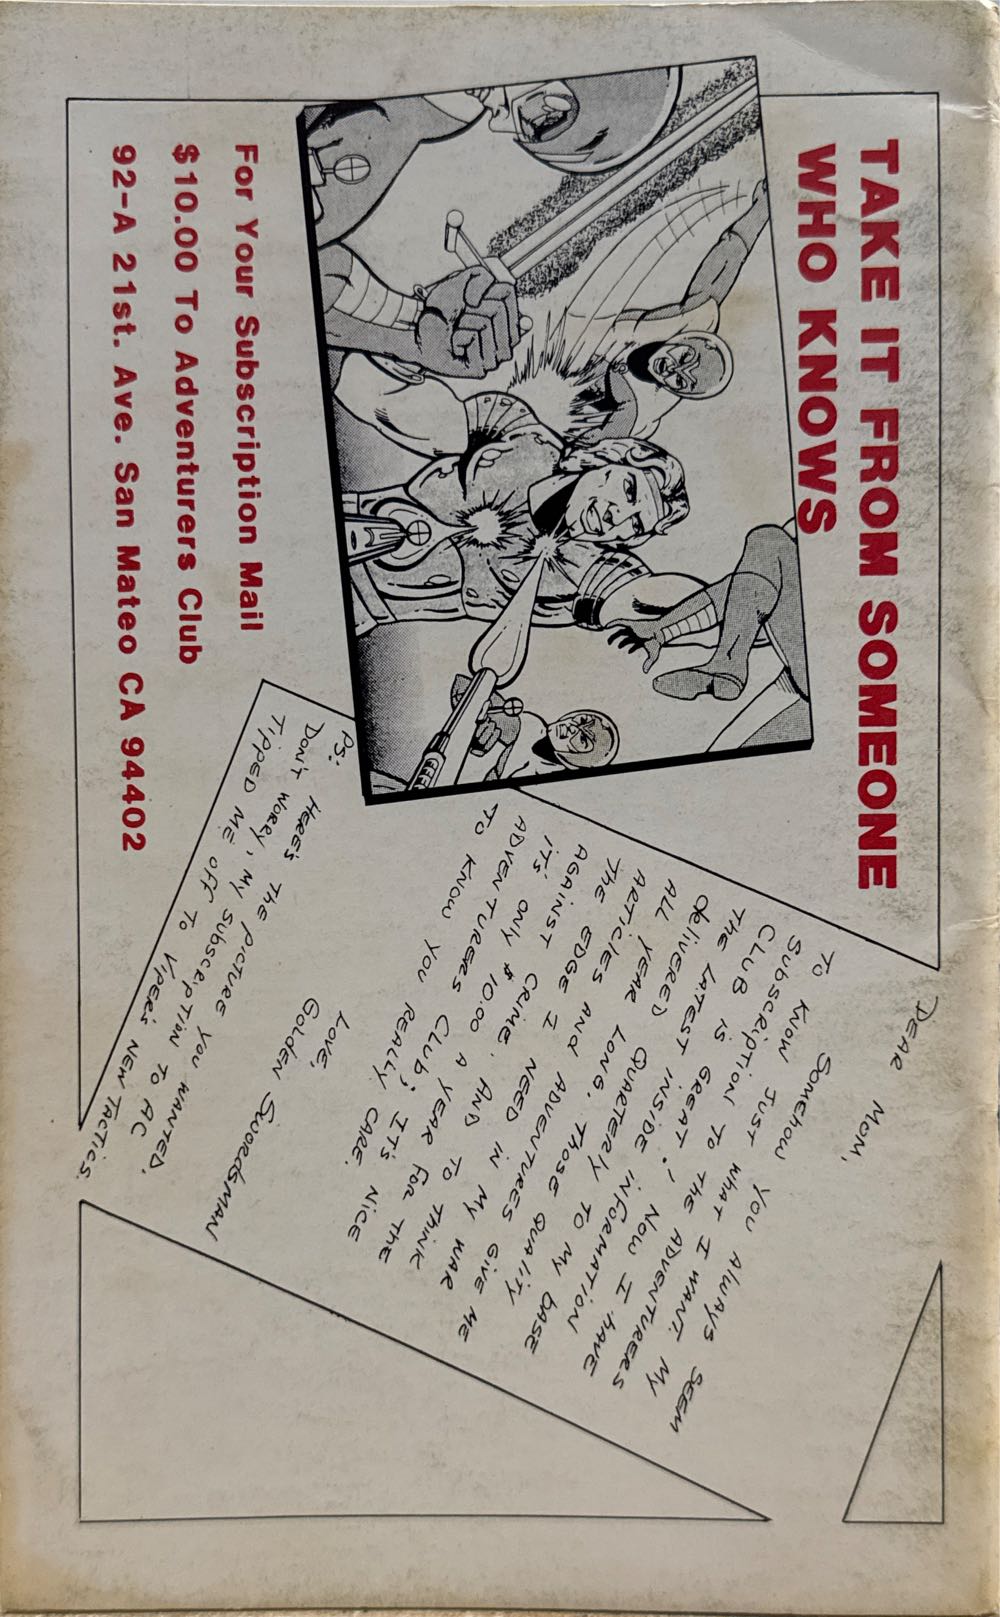 TAKE IT FROM SOMEONE
WHO KNOWS
DEAR MOM,
SOMEHOW YOU ALWAYS SEEM
TO KNOW JUST WHAT I WANT. MY
SUBSCRIPTION TO THE ADVENTURERS
CLUB IS GREAT! NOW I HAVE
THE LATEST INSIDE INFORMATION
delivered QUARTERLY TO MY BASE
ALL YEAR LONG. THOSE QUALITY
ARTICLES AND ADVENTURES GIVE ME
THE EDGE I NEED IN MY WAR
AGAINST CRIME. AND TO THINK
IT'S ONLY $10.00 A YEAR FOR THE
ADVENTURERS CLUB; IT'S NICE
TO KNOW YOU REALLY CARE.
LOVE,
GOLDEN SWORDSMAN
PS: HERE'S THE PICTURE YOU WANTED.
DON'T WORRY, MY SUBSCRIPTION TO AC
TIPPED ME OFF TO VIPER'S NEW TACTICS.
For Your Subscription Mail
$10.00 To Adventurers Club
92-A 21st. Ave. San Mateo CA 94402